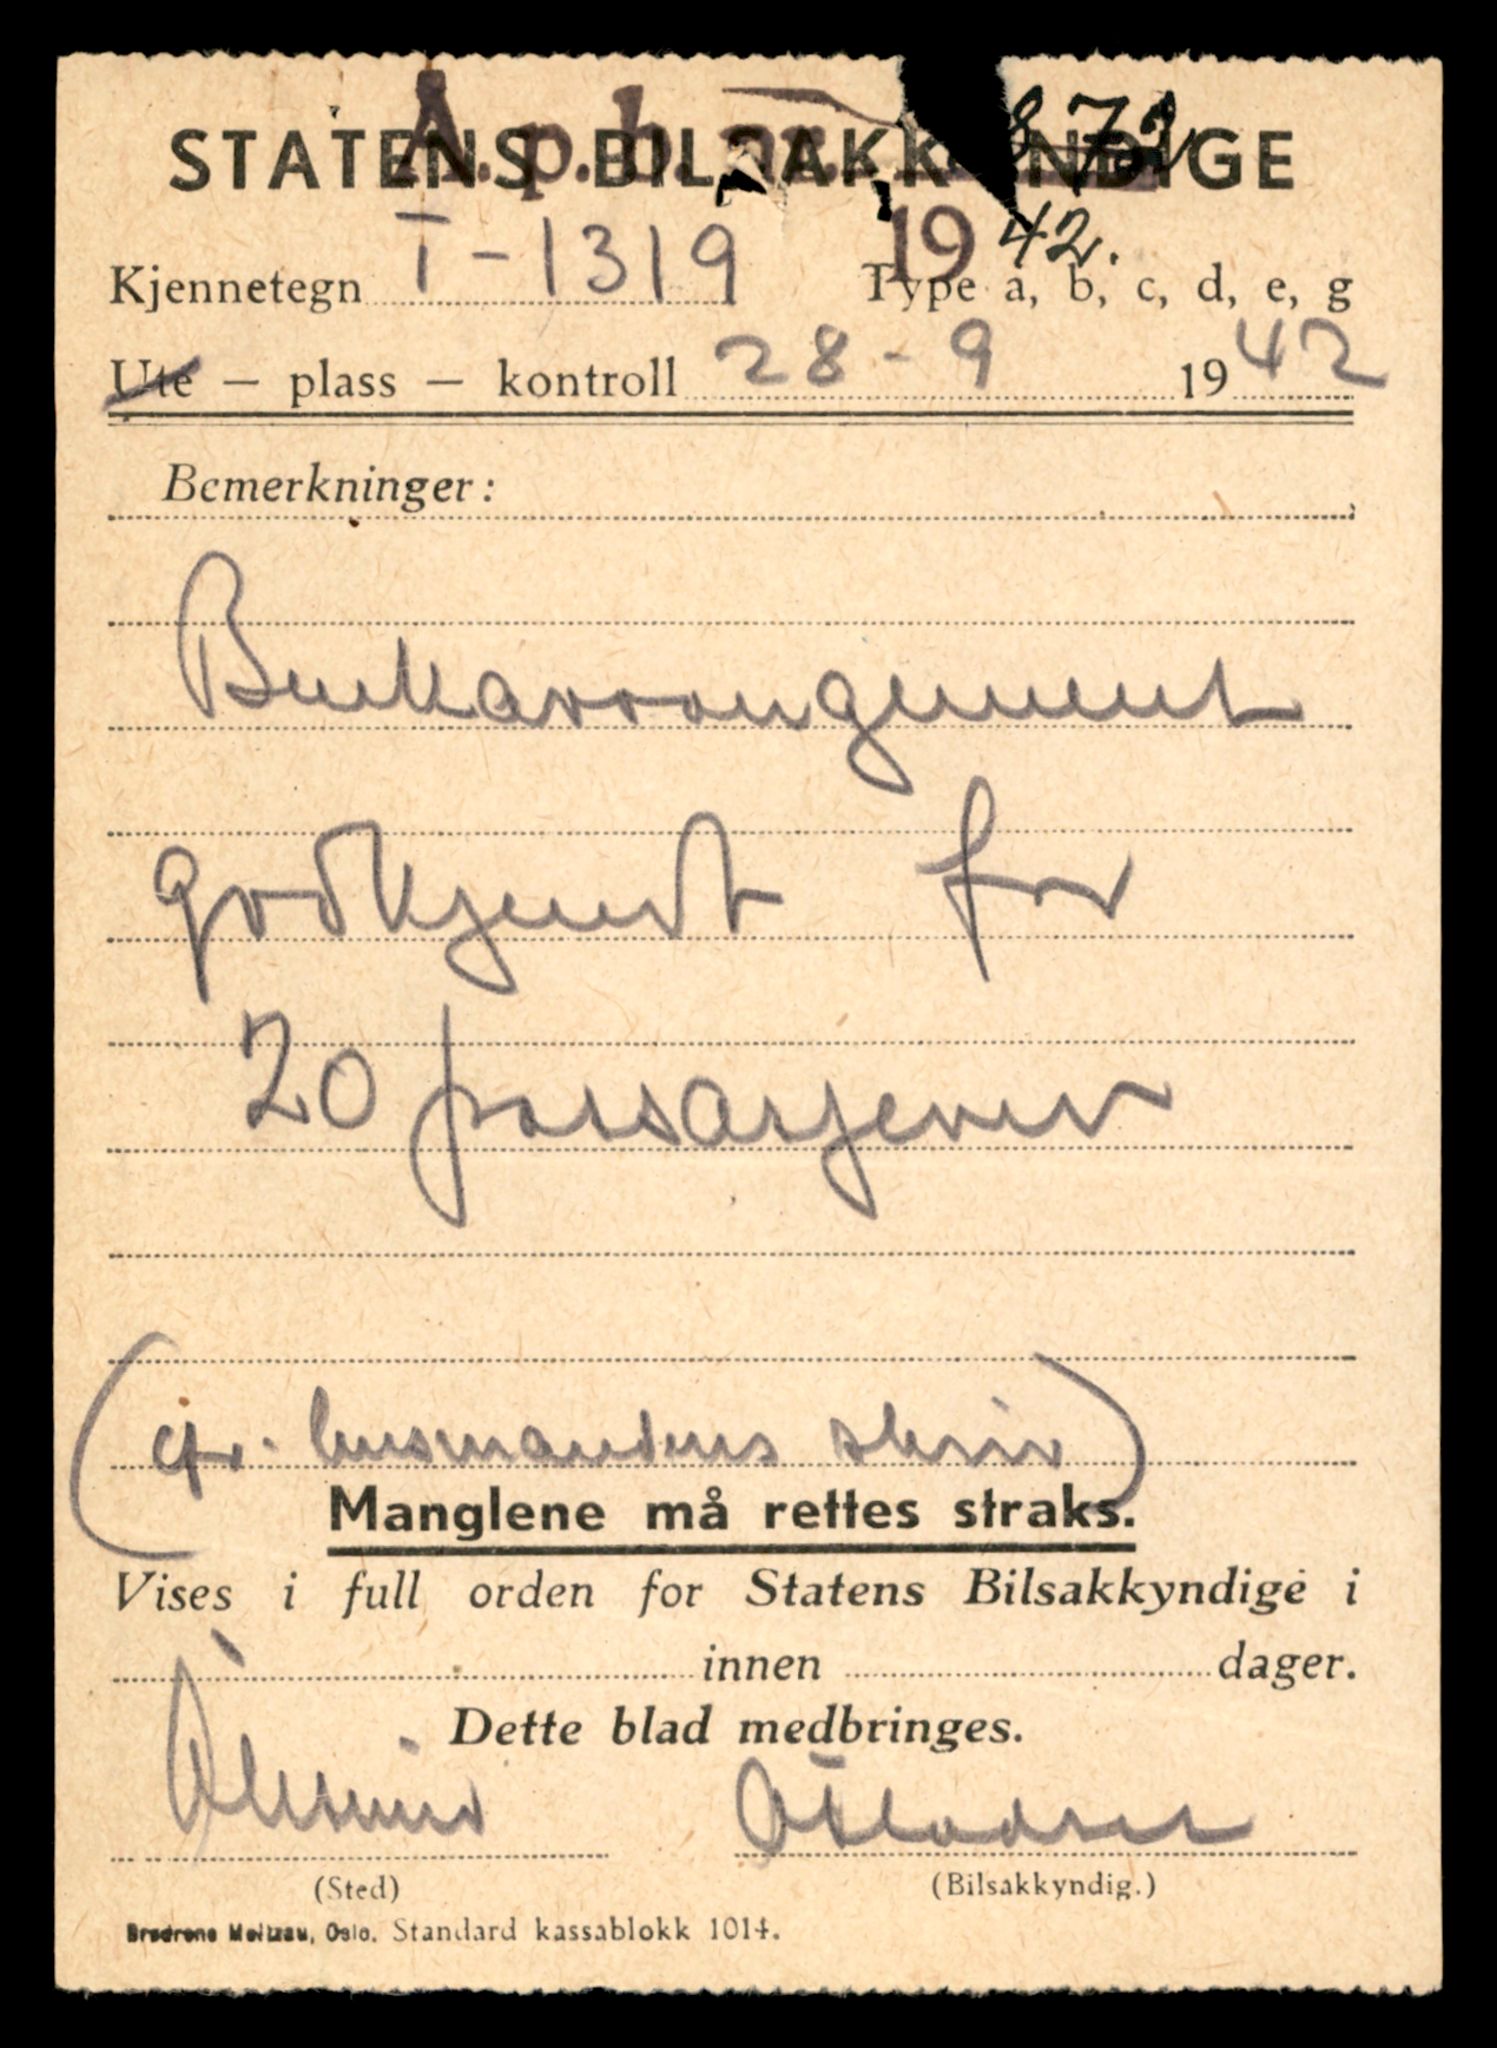 Å.p.b. nr. 872
STATENS BILSAKKYNDIGE
1942.
Kjennetegn T-1319 Type a, b, c, d, e, g
Ute — plass — kontroll 28-9 1942
Bemerkninger:
Benkarrangement
godkjent for
20 passasjerer
(cfr. skriv)
Manglene må rettes straks.
Vises i full orden for Statens Bilsakkyndige i
innen dager.
Dette blad medbringes.
Ålesund
(Sted) (Bilsakkyndig.)
Brødrene Meltzau, Oslo. Standard kassablokk 1014.